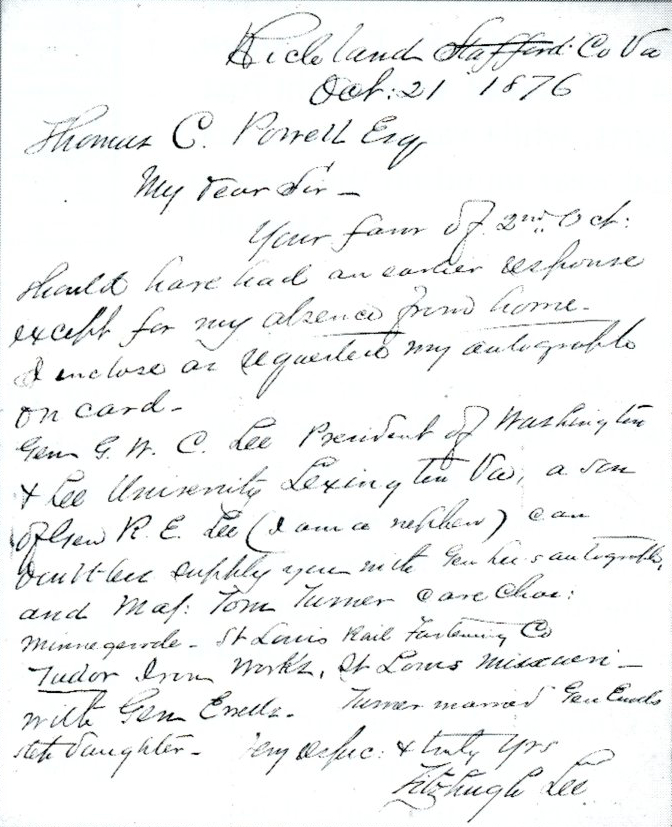 Richland Stafford Co Va
Oct: 21 1876
Thomas C. Powell Esq
My Dear Sir -
Your favor of 2nd Oct:
should have had an earlier response
except for my absence from home -
I inclose as requested my autograph
on card -
Gen G. W. C. Lee President of Washington
& Lee University Lexington Va, a son
of Gen R. E. Lee (I am a nephew) can
doubtless supply you with Gen Lee's autograph,
and Maj: Tom Turner care Chas:
- St Louis Rail Fastening Co
Tudor Iron Works, St Louis Missouri -
with Gen Ewells - Turner married Gen Ewells
step daughter - Very respec: & truly Yrs
Fitzhugh Lee